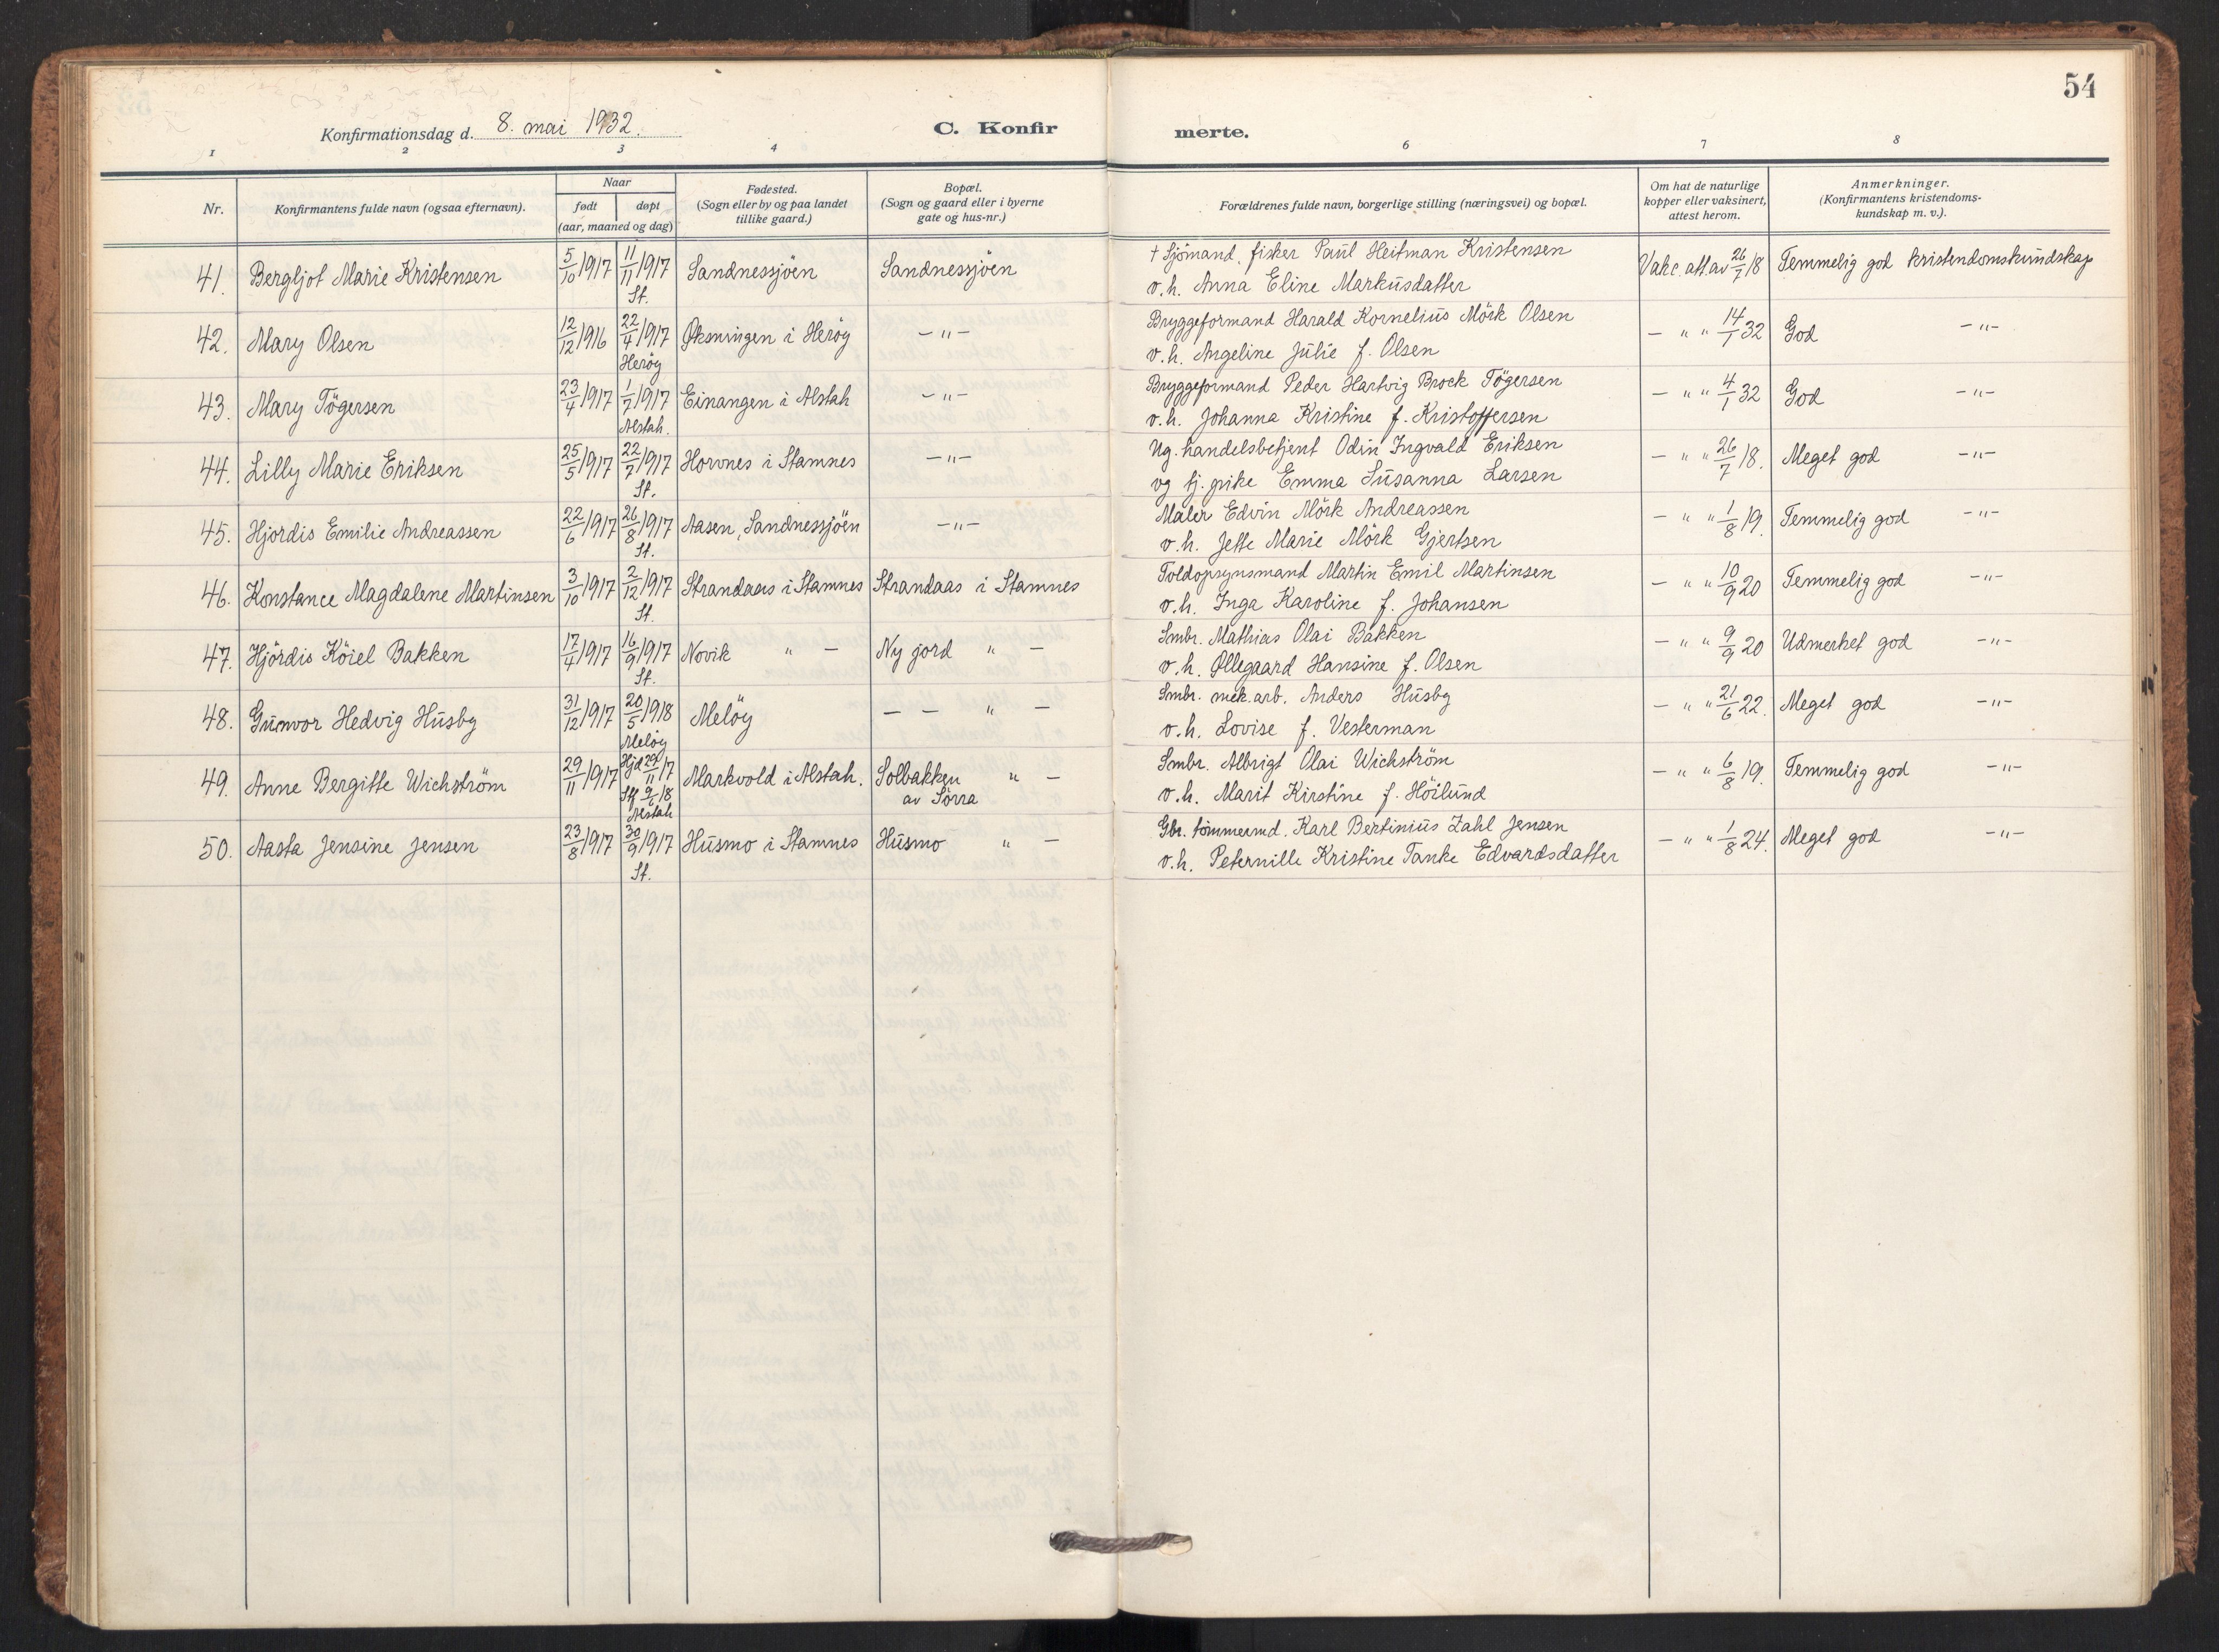 54
Konfirmationsdag d. 8. mai 1932.
C. Konfirmerte.
1 2 3 4 6 7 8
Nr.
Konfirmantens fulde navn (ogsaa efternavn).
Naar
født døpt
(aar, maaned og dag)
Fødested.
(Sogn eller by og paa landet
tillike gaard.)
Bopæl.
(Sogn og gaard eller i byerne
gate og hus-nr.)
Forældrenes fulde navn, borgerlige stilling (næringsvei) og bopæl.
Om hat de naturlige
kopper eller vaksinert,
attest herom.
Anmerkninger.
(Konfirmantens kristendoms-
kundskap m. v.).
41. Bergljot Marie Kristensen 5/10 1917 11/11 1917 St. Sandnessjöen Sandnessjöen
† Sjömand, fisker Paul Heitman Kristensen
o.h. Anna Eline Markusdatter
Vakc. att av 26/7 18 Temmelig god kristendomskundskap
42. Mary Olsen 12/12 1916 22/4 1917 Heröy Øksningen i Heröy -"-
Bryggeformand Harald Kornelius Mörk Olsen
o.h. Angeline Julie f. Olsen
- " " 14/1 32 God -"-
43. Mary Tögersen 23/4 1917 1/7 1917 Alstah. Einangen i Alstah -"-
Bryggeformand Peder Hartvig Brock Tögersen
o.h. Johanna Kristine f. Kristoffersen
- " " 4/1 32 God -"-
44. Lilly Marie Eriksen 25/5 1917 22/7 1917 St. Horvnes i Stamnes -"-
Ug. handelsbetjent Odin Ingvald Eriksen
og tj. pike Emma Susanna Larsen
- " " 26/7 18. Meget god -"-
45. Hjordis Emilie Andreassen 22/6 1917 26/8 1917 St. Aasen, Sandnessjöen -"-
Maler Edvin Mörk Andreassen
o.h. Jette Marie Mörk Gjertsen
- " " 1/8 19. Temmelig god -"-
46. Konstance Magdalene Martinsen 3/10 1917 2/12 1917 St. Strandaas i Stamnes Strandaas i Stamnes
Toldopsynsmand Martin Emil Martinsen
o.h. Inga Karoline f. Johansen
- " " 10/9 20 Temmelig god -"-
47. Hjördis Köiel Bakken 17/4 1917 16/9 1917 St. Novik " - Ny jord " -
Smbr. Mathias Olai Bakken
o.h. Øllegaard Hansine f. Olsen
- " " 9/9 20 Udmerket god -"-
48. Gunvor Hedvig Husby 31/12 1917 20/5 1918 Melöy Melöy - - " -
Smbr. mek. arb. Anders Husby
o.h. Lovise f. Vesterman
- " " 21/6 22. Meget god -"-
49. Anne Bergitte Wichström 29/11 1917 Hjd 29/11 17 Stf 9/6 18 Alstah Markvold i Alstah. Solbakken " -
av Sörra
Smbr. Albrigt Olai Wichström
o.h. Marit Kirstine f. Höilund
- " " 6/8 19. Temmelig god -"-
50. Aasta Jensine Jensen 23/8 1917 30/9 1917 St. Husmo i Stamnes Husmo " -
Gbr. tömmermd. Karl Bertinius Zahl Jensen
o.h. Peternille Kristine Tanke Edvardsdatter
- " " 1/8 24. Meget god -"-